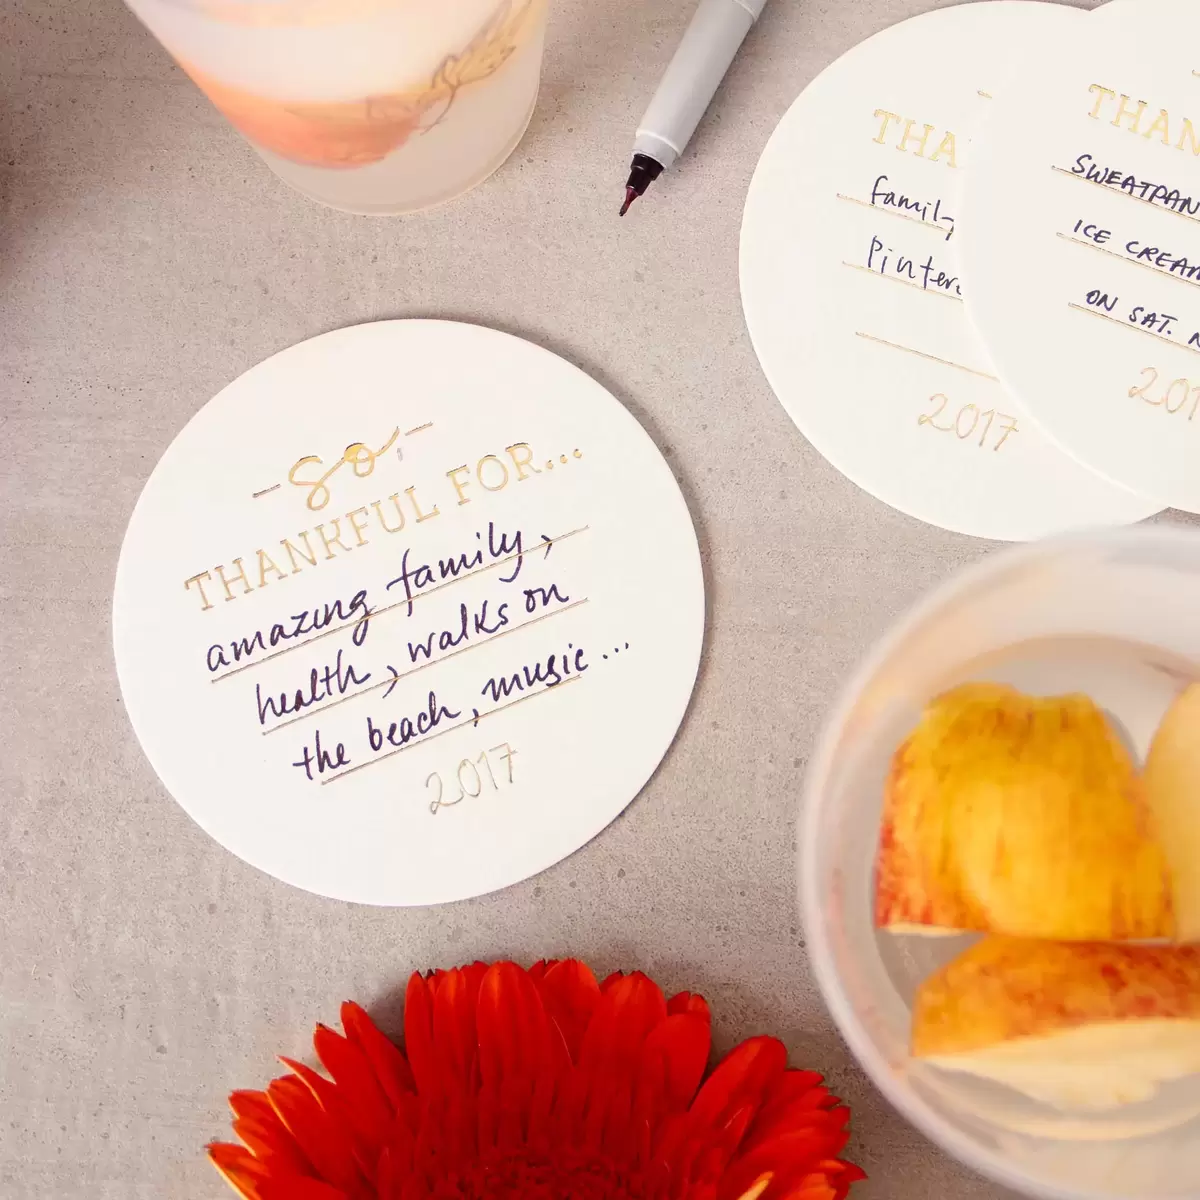 -so-
THANKFUL FOR...
amazing family,
health, walks on
the beach, music...
2017
THA
family
Pinter
2017
THAN
SWEATPAN
ICE CREAM
ON SAT. N
201